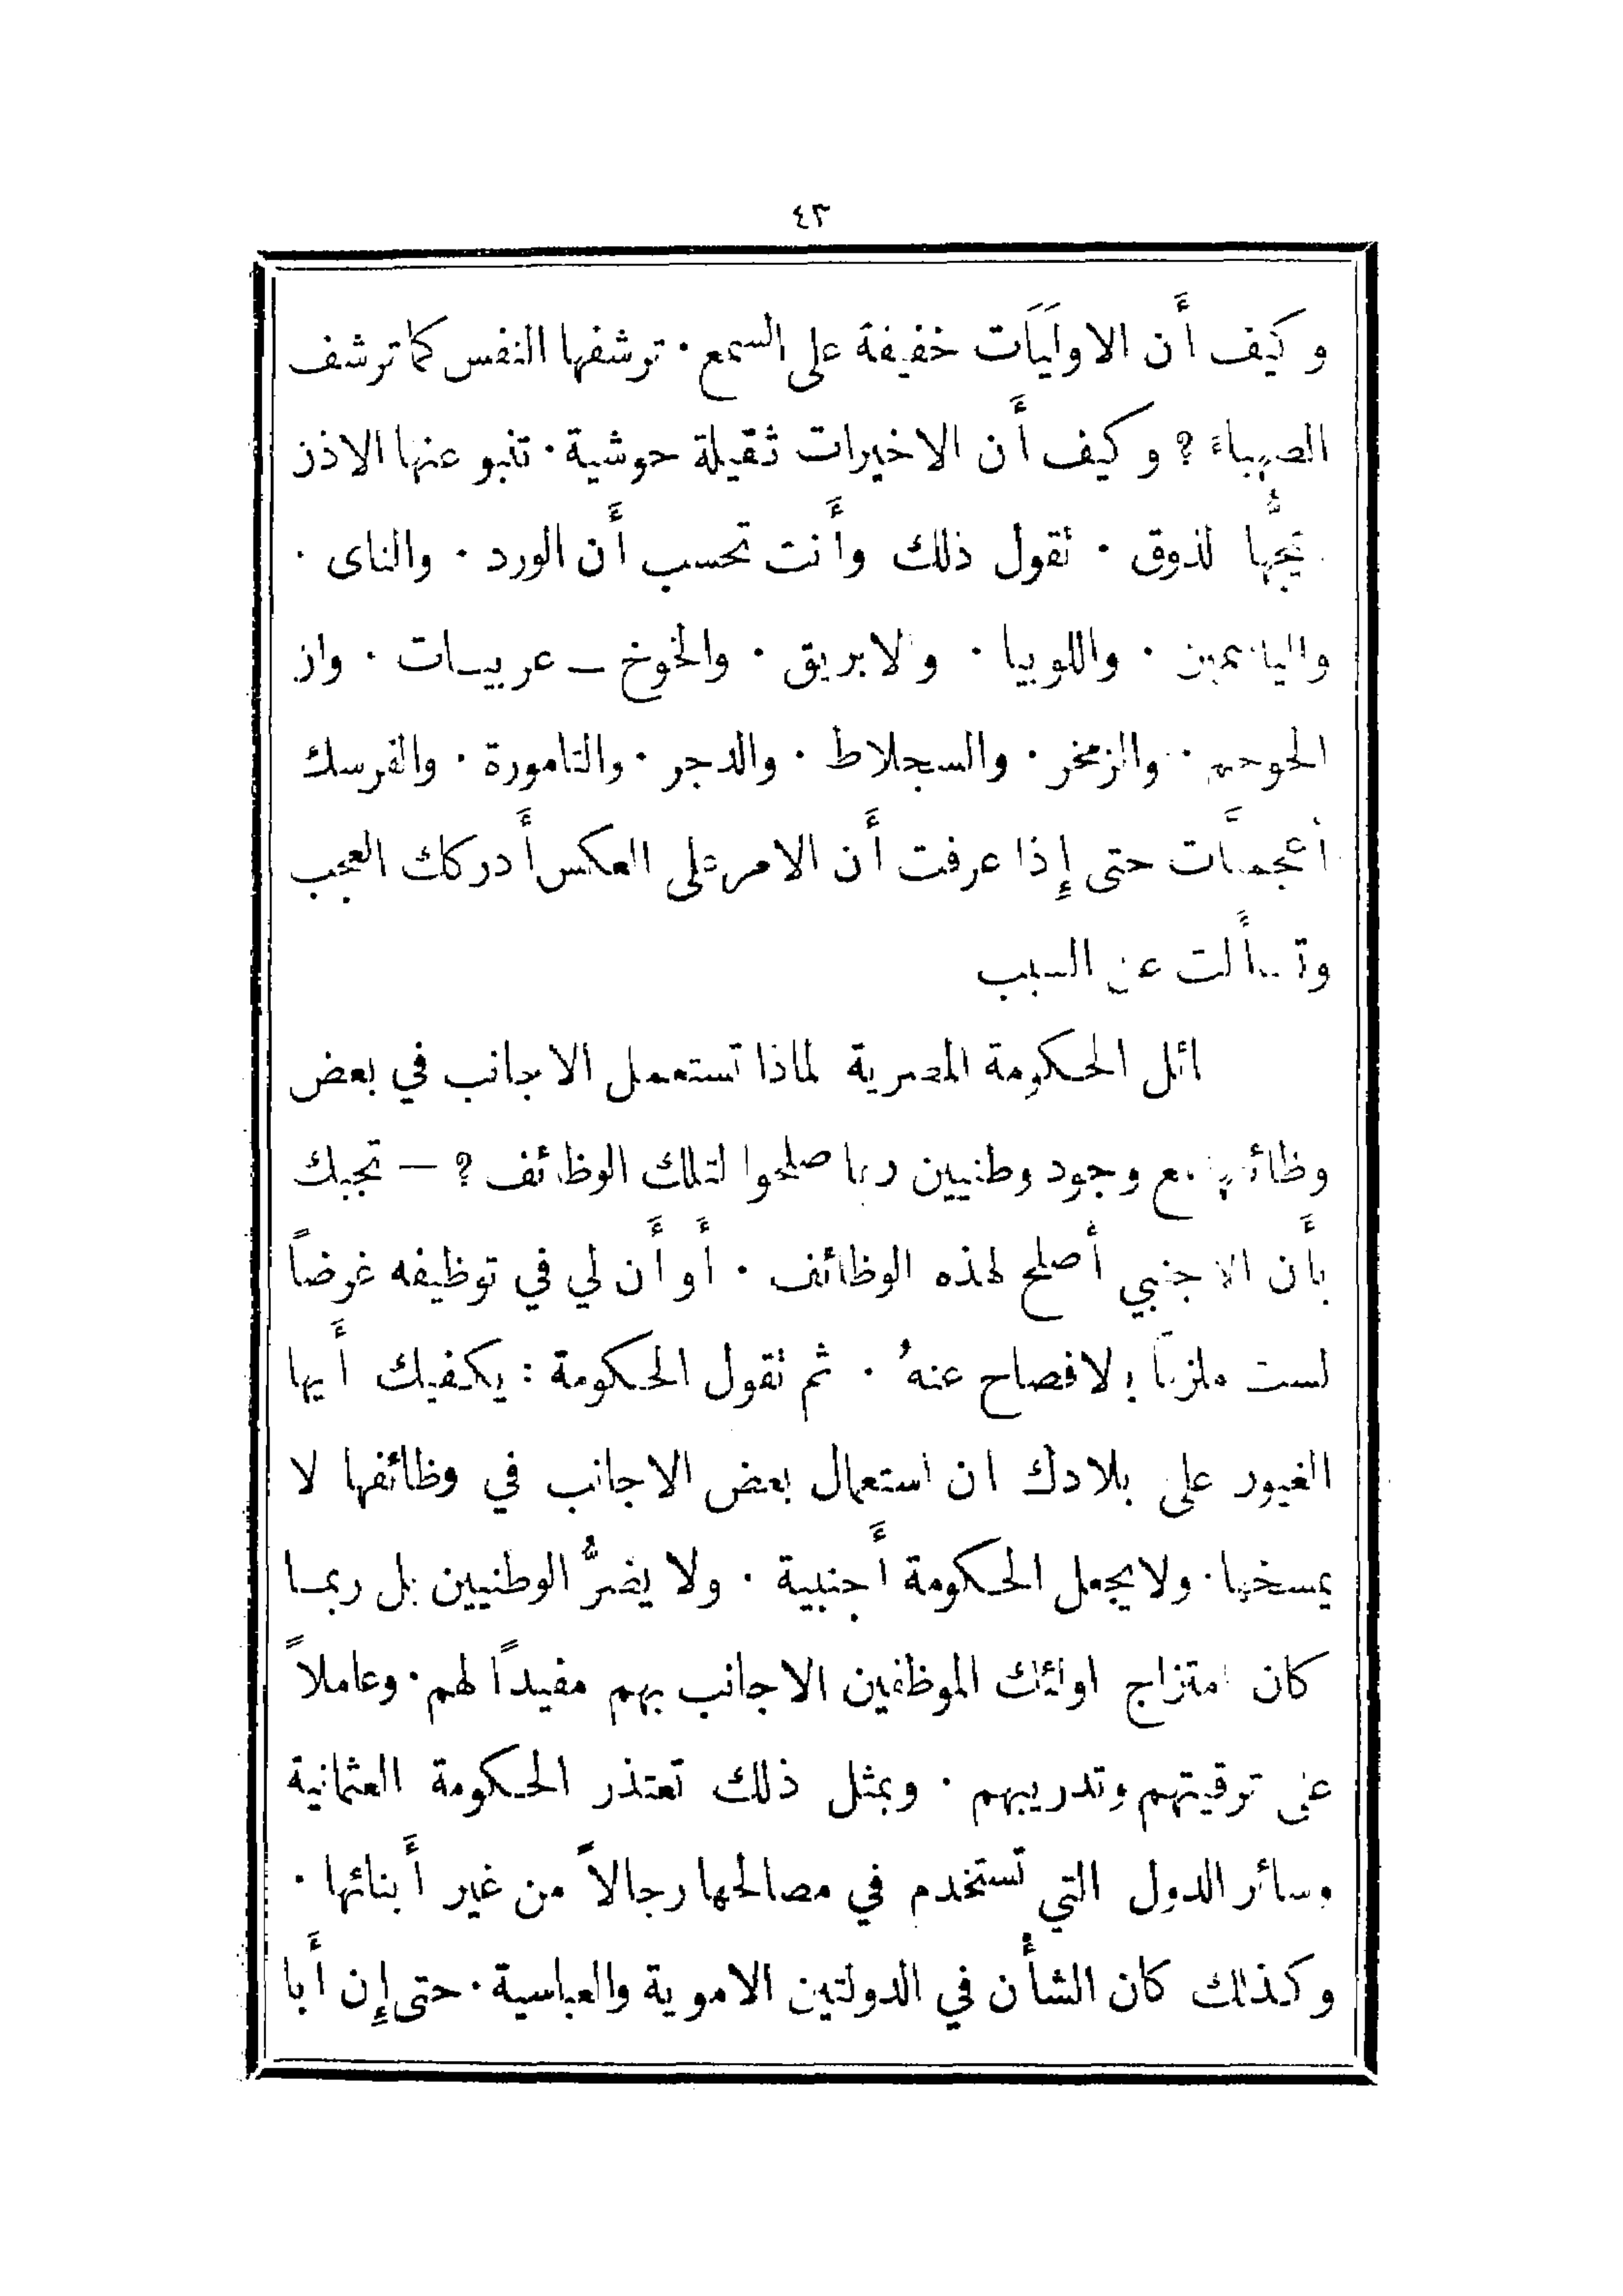 ٤٣
وكيف أَن الاوليَات خفيفة على السمع . ترشفها النفس كما ترشف
الصهباء ؟ وكيف أَن الاخيرات ثقيلة حوشية . تنبو عنها الاذن
يمجُّها الذوق . تقول ذلك وأَنت تحسب أَن الورد . والناى .
والياسمين . واللوبيا . والابريق . والخوخ ــ عربيات . وان
الحوجم . والزمخر . والسجلاط . والدجر . والتامورة . والفرسك
أعجميَّات حتى إِذا عرفت أَن الامر على العكس أَدركك العجب
وتساءَلت عن السبب
اسئل الحكومة المصرية لماذا تستعمل الاجانب في بعض
وظائفها مع وجود وطنيين ربما صلحوا لتلك الوظائف ؟ — تجبك
بأَن الاجنبي أَصلح لهذه الوظائف . أَو أَن لي في توظيفه غرضاً
لست ملزماً بالافصاح عنهُ . ثم تقول الحكومة : يكفيك أَيها
الغيور على بلادك ان استعمال بعض الاجانب في وظائفها لا
يمسخها . ولا يجعل الحكومة أَجنبية . ولا يضرُّ الوطنيين بل ربما
كان امتزاج اولئك الموظفين الاجانب بهم مفيداً لهم . وعاملاً
على ترقيتهم وتدريبهم . وبمثل ذلك تعتذر الحكومة العثمانية
وسائر الدول التي تستخدم في مصالحها رجالاً من غير أَبنائها .
وكذلك كان الشأن في الدولتين الاموية والعباسية . حتى إِن أَبا